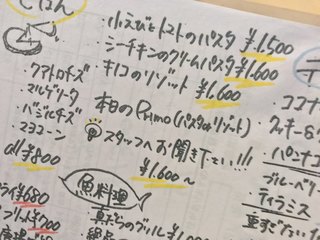 ごはん
・小えびとトマトのパスタ ¥1,500
・シーチキンのクリームパスタ ¥1,600
・キノコのリゾット ¥1,600
本日のPrimo (パスタorリゾット)
スタッフへお聞き下さい!!!
¥1,600~
・クアトロチーズ
・マルゲリータ
・バジルチーズ
・マヨコーン
all ¥800
魚料理
フライ ¥680
¥700
ココナ
クッキー&
パンナコ
ブルーベリー
ティラミス